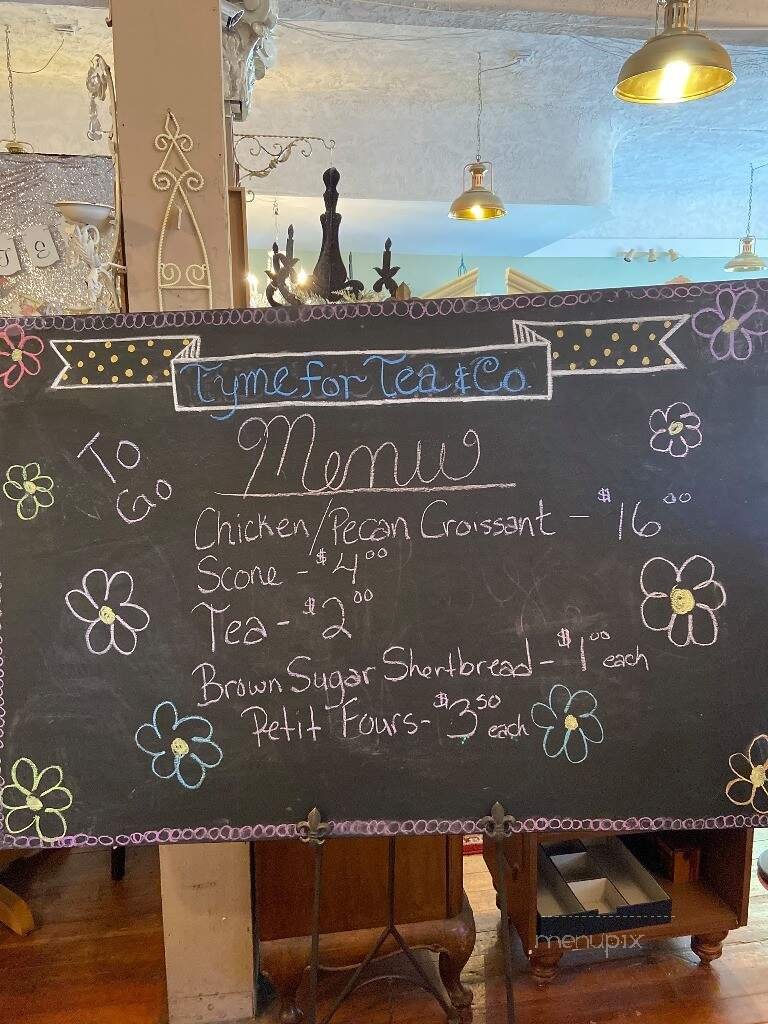 Tyme for Tea & Co.
To Go
Menu
Chicken/Pecan Croissant - $16.00
Scone - $4.00
Tea - $2.00
Brown Sugar Shortbread - $1.00 each
Petit Fours - $3.50 each
menupix